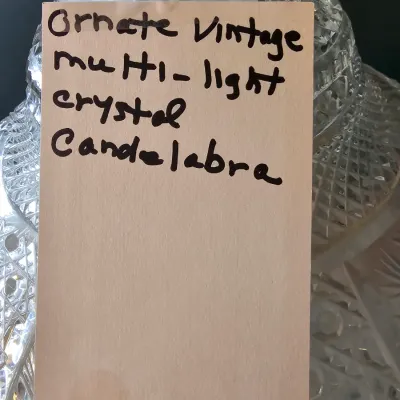 Ornate Vintage
multi-light
crystal
Candelabra